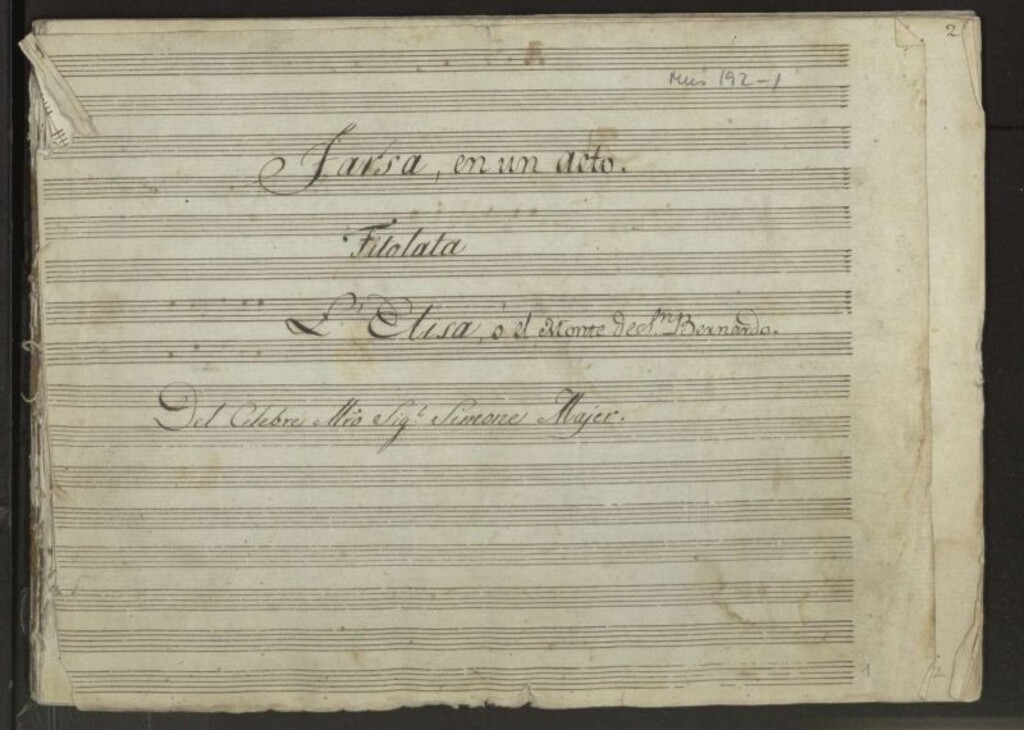 2
Mus 192-1
Farsa, en un acto.
Titolata
L'Elisa, ó el Monte de Sn. Bernardo.
Del Celebre Mro Sigr. Simone Majer.
1
2